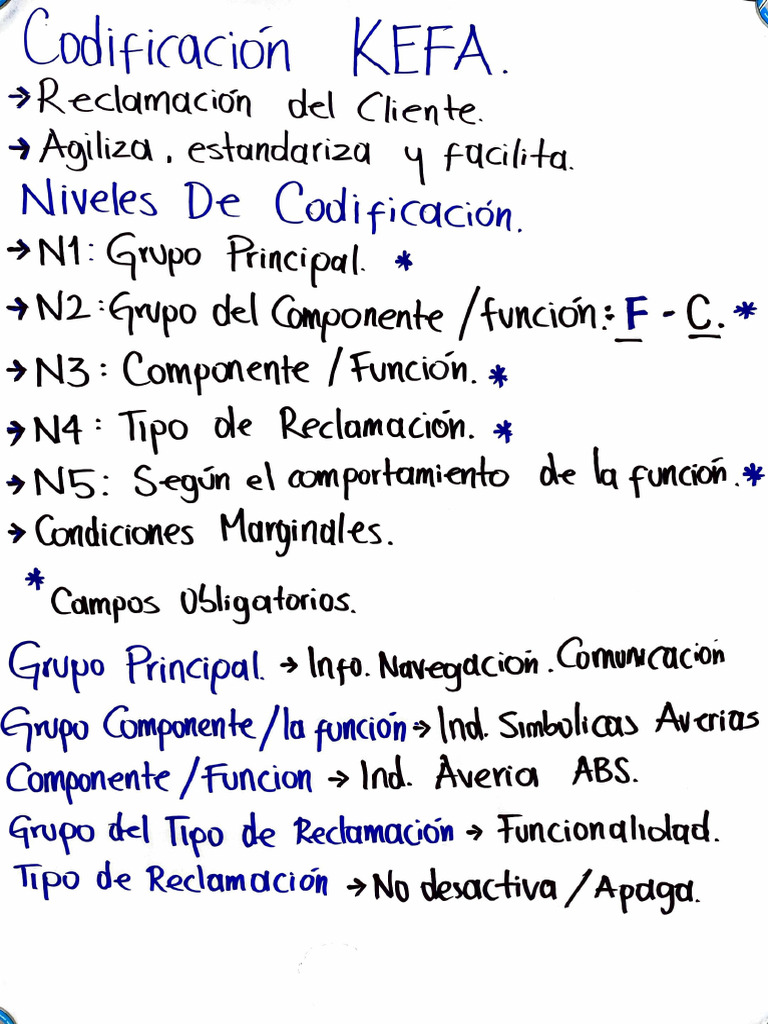 Codificación KEFA.
→ Reclamación del Cliente.
→ Agiliza, estandariza y facilita.
Niveles De Codificación.
→ N1: Grupo Principal. *
→ N2: Grupo del Componente / función: F - C. *
→ N3: Componente / Función. *
→ N4: Tipo de Reclamación. *
→ N5: Según el comportamiento de la función. *
→ Condiciones Marginales.
* Campos Obligatorios.
Grupo Principal. → Info. Navegación. Comunicación
Grupo Componente / la función → Ind. Simbolicas Averias
Componente / Funcion → Ind. Averia ABS.
Grupo del Tipo de Reclamación → Funcionalidad.
Tipo de Reclamación → No desactiva / Apaga.